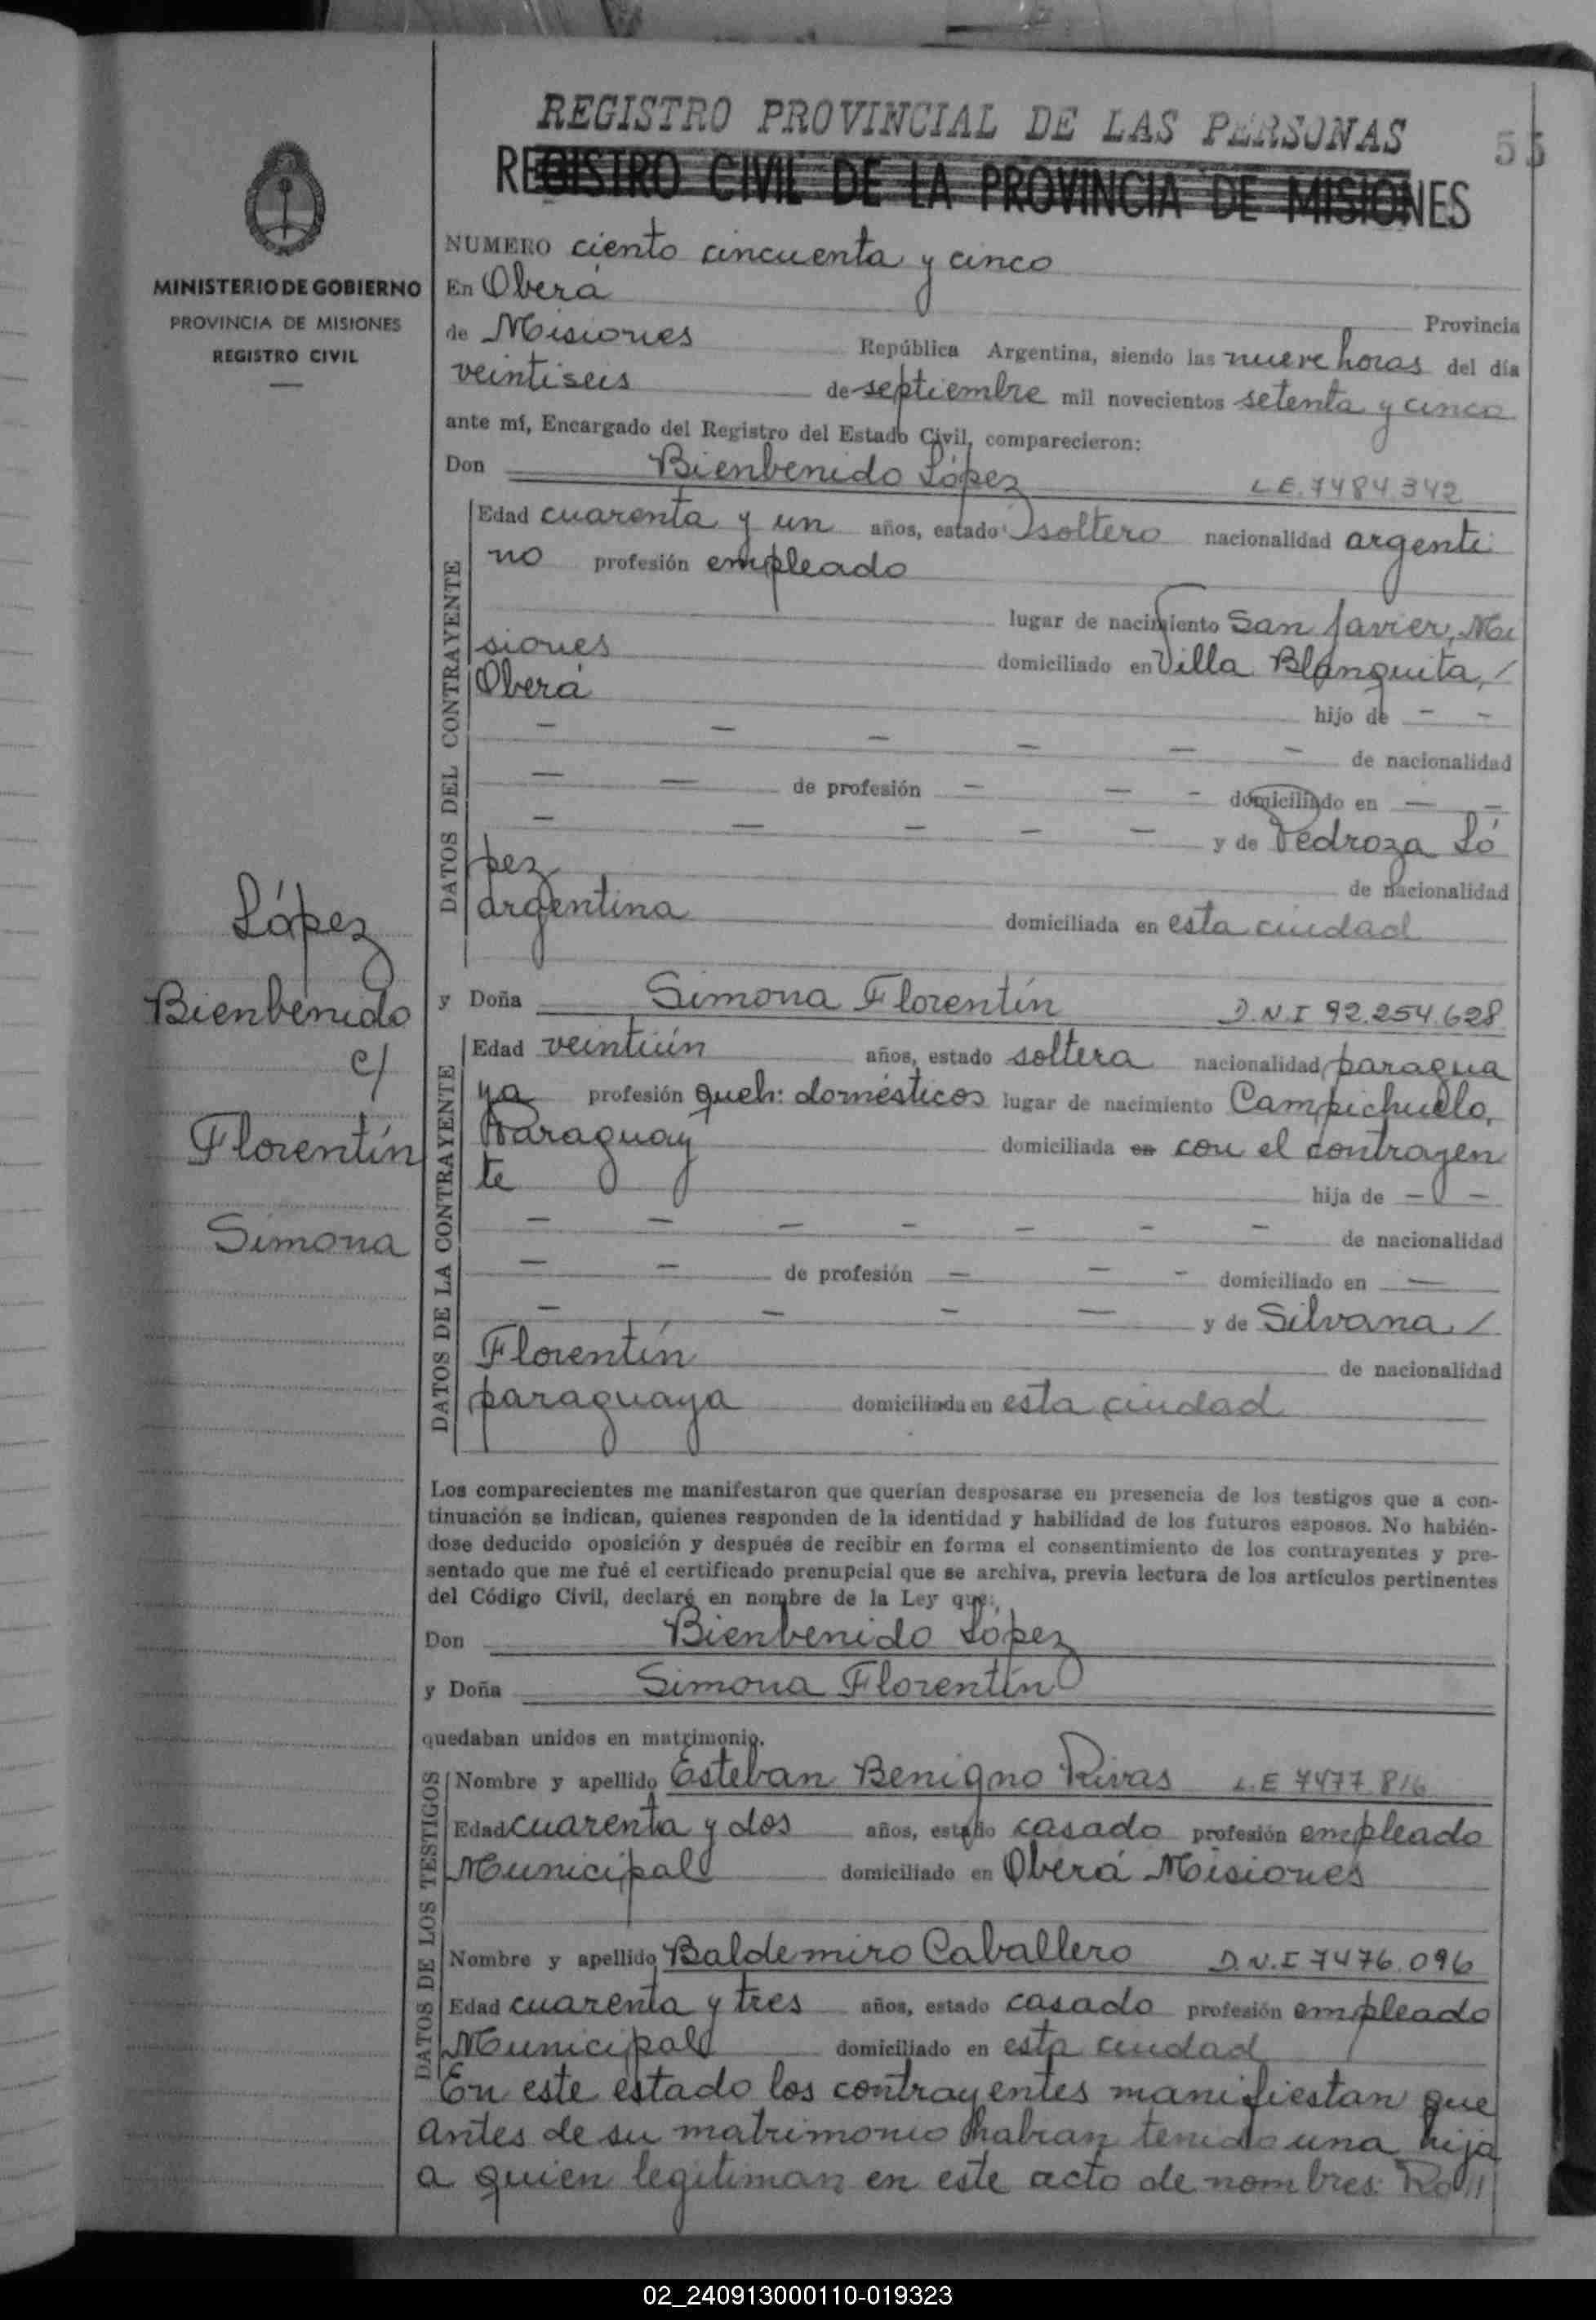 REGISTRO PROVINCIAL DE LAS PERSONAS
55
REGISTRO CIVIL DE LA PROVINCIA DE MISIONES
MINISTERIO DE GOBIERNO
PROVINCIA DE MISIONES
REGISTRO CIVIL
López
Bienbenido
c/
Florentín
Simona
NUMERO ciento cincuenta y cinco
En Oberá
Provincia
de Misiones República Argentina, siendo las nueve horas del día
veintiseis de septiembre mil novecientos setenta y cinco
ante mí, Encargado del Registro del Estado Civil, comparecieron:
Don Bienbenido López L.E. 7484.342
DATOS DEL CONTRAYENTE
Edad cuarenta y un años, estado soltero nacionalidad argenti
no profesión empleado
lugar de nacimiento San Javier, Mi
siones domiciliado en Villa Blanquita, /
Oberá hijo de - -
- - - - - - de nacionalidad
- - de profesión - - - domiciliado en - -
- - - - - y de Pedroza Ló
pez de nacionalidad
argentina domiciliada en esta ciudad
y Doña Simona Florentín D.N.I 92.254.628
DATOS DE LA CONTRAYENTE
Edad veintiún años, estado soltera nacionalidad paragua
ya profesión queh: domésticos lugar de nacimiento Campichuelo,
Paraguay domiciliada en con el contrayen
te hija de - -
- - - - - - - de nacionalidad
- - de profesión - - - domiciliado en -
- - - - y de Silvana /
Florentín de nacionalidad
paraguaya domiciliada en esta ciudad
Los comparecientes me manifestaron que querían desposarse en presencia de los testigos que a con-
tinuación se indican, quienes responden de la identidad y habilidad de los futuros esposos. No habién-
dose deducido oposición y después de recibir en forma el consentimiento de los contrayentes y pre-
sentado que me fué el certificado prenupcial que se archiva, previa lectura de los artículos pertinentes
del Código Civil, declaré en nombre de la Ley que:
Don Bienbenido López
y Doña Simona Florentín
quedaban unidos en matrimonio.
DATOS DE LOS TESTIGOS
Nombre y apellido Esteban Benigno Rivas L.E 7477.816
Edad cuarenta y dos años, estado casado profesión empleado
Municipal domiciliado en Oberá Misiones
Nombre y apellido Baldemiro Caballero D.N.I 7476.096
Edad cuarenta y tres años, estado casado profesión empleado
Municipal domiciliado en esta ciudad
En este estado los contrayentes manifiestan que
antes de su matrimonio habian tenido una hija
a quien legitiman en este acto de nombres: Ro//
02_240913000110-019323